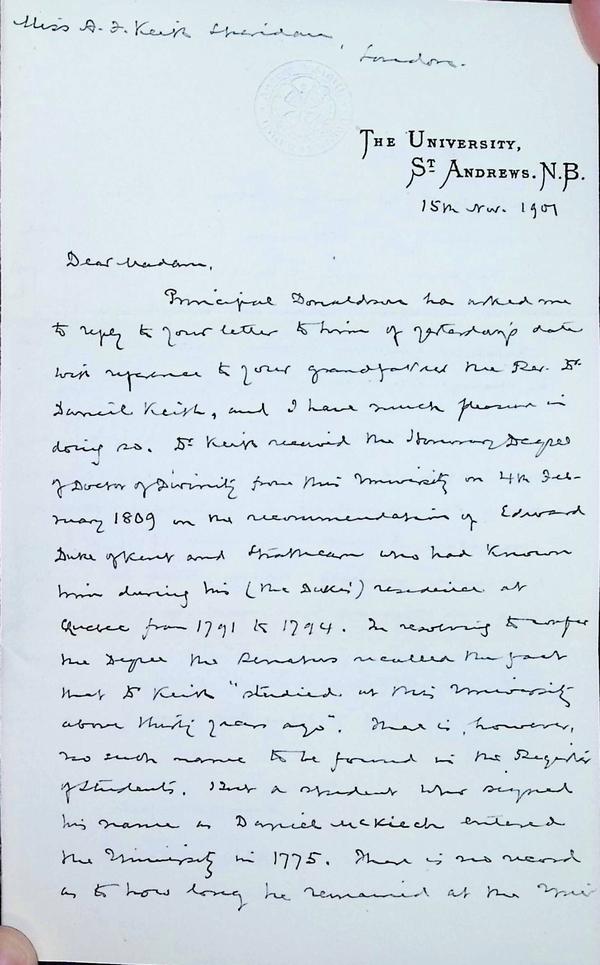 Miss A. J. Keith Sheridan,
London.
THE UNIVERSITY,
ST ANDREWS. N.B.
15th Nov. 1907
Dear Madam,
Principal Donaldson has asked me
to reply to your letter to him of yesterday's date
with reference to your grandfather the Rev. Dr
Daniel Keith, and I have much pleasure in
doing so. Dr Keith received the Honorary Degree
of Doctor of Divinity from this University on 4th Feb-
ruary 1809 on the recommendation of Edward
Duke of Kent and Strathearn who had known
him during his (the Duke's) residence at
Quebec from 1791 to 1794. In resolving to confer
the Degree the Senatus recalled the fact
that Dr Keith "studied at this University
above thirty years ago". There is, however,
no such name to be found in the Register
of Students. But a student who signed
his name as Daniel McKiech entered
the University in 1775. There is no record
as to how long he remained at the Univ